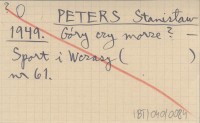 PETERS Stanisław
1949. Góry czy morze? –
Sport i Wczasy (      )
nr 61.
IBL/040/0089